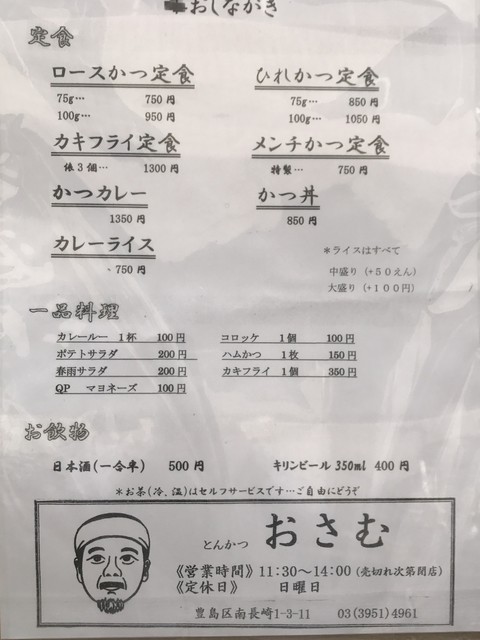 おしながき
定食
ロースかつ定食
75g… 750円
100g… 950円
ひれかつ定食
75g… 850円
100g… 1050円
カキフライ定食
俵3個… 1300円
メンチかつ定食
特製… 750円
かつカレー
1350円
かつ丼
850円
カレーライス
750円
*ライスはすべて
中盛り(+50えん)
大盛り(+100円)
一品料理
カレールー 1杯 100円
ポテトサラダ 200円
春雨サラダ 200円
QP マヨネーズ 100円
コロッケ 1個 100円
ハムかつ 1枚 150円
カキフライ 1個 350円
お飲物
日本酒(一合半) 500円
キリンビール 350ml 400円
*お茶(冷、温)はセルフサービスです…ご自由にどうぞ
とんかつ おさむ
《営業時間》11:30〜14:00(売切れ次第閉店)
《定休日》 日曜日
豊島区南長崎1-3-11 03(3951)4961